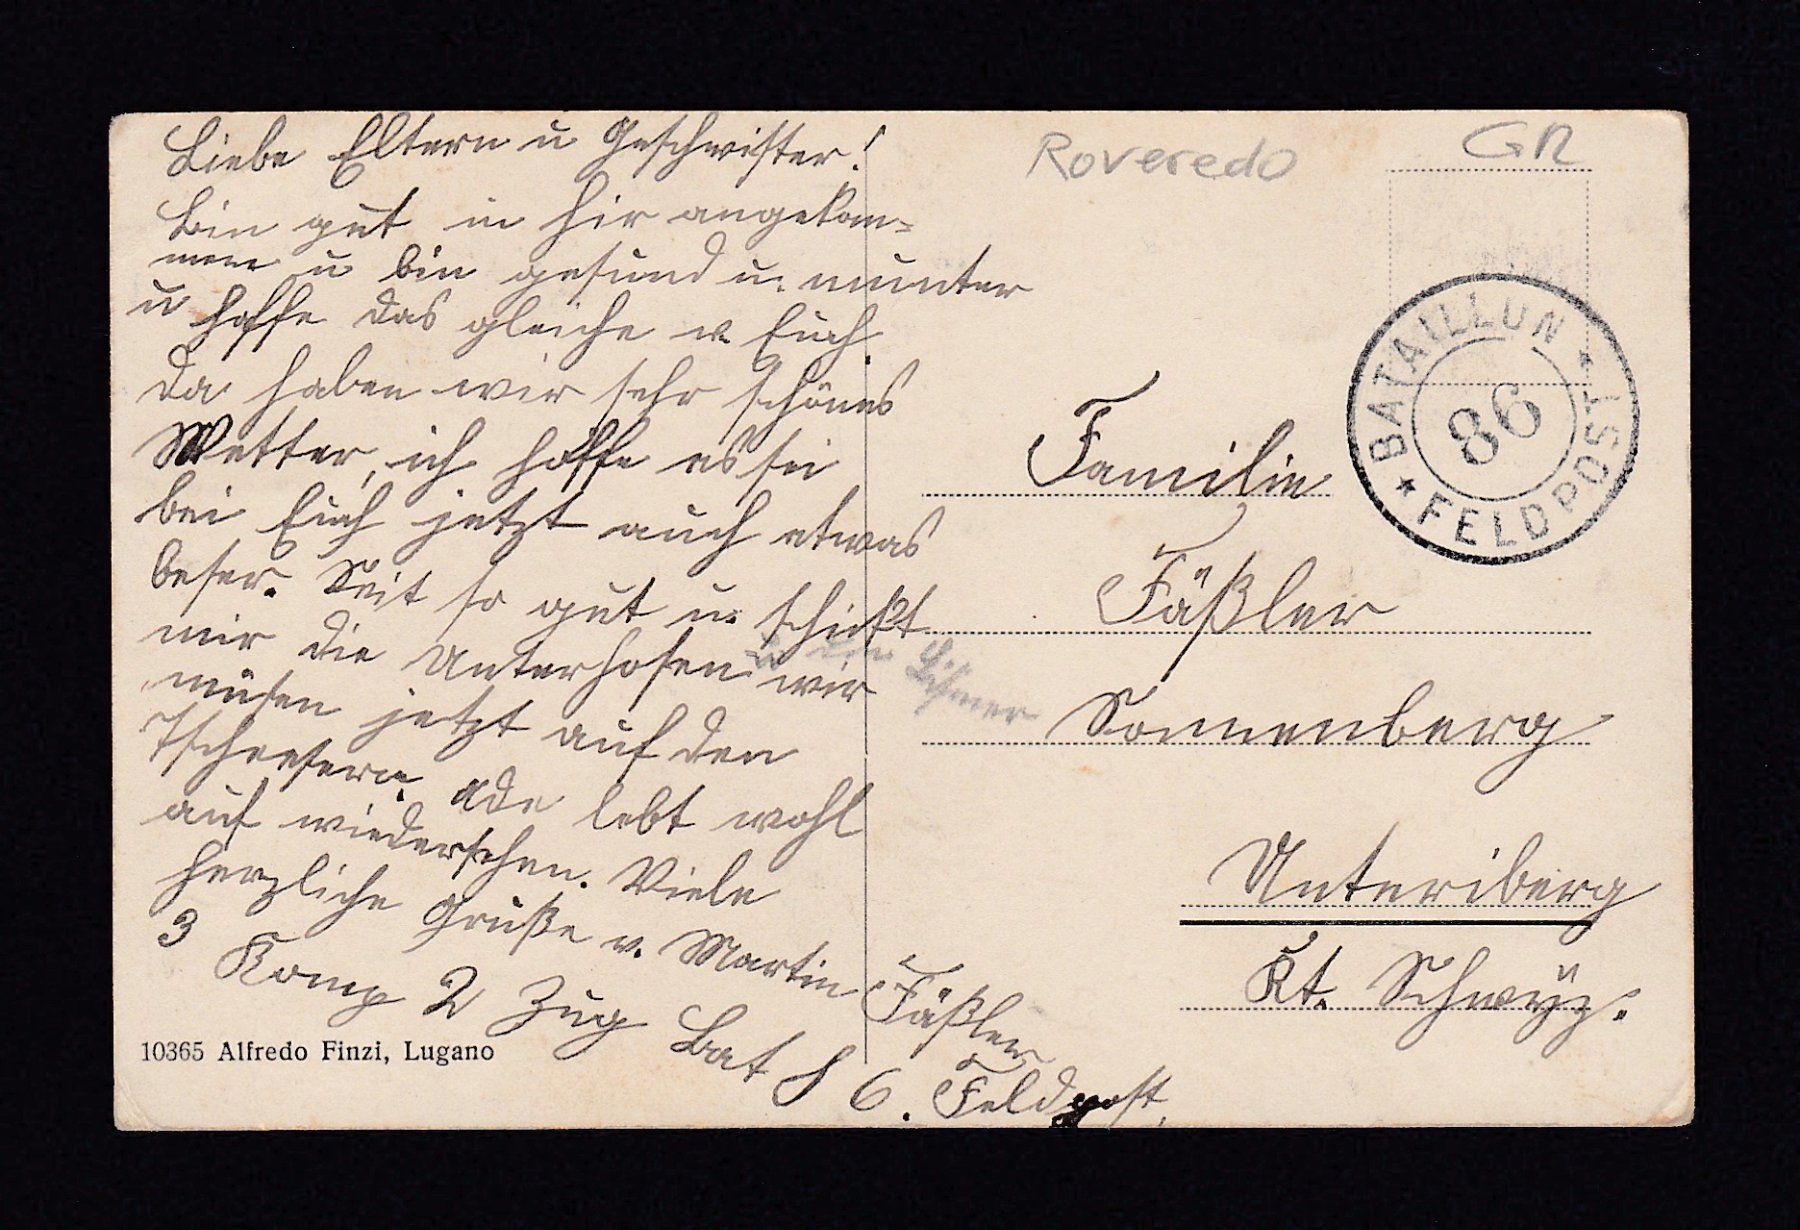 Liebe Eltern u Geschwister!
Bin gut in hir angekom=
men u bin gesund u. munter
u hoffe das gleiche v. Euch.
Da haben wir sehr schönes
Wetter, ich hoffe es sei
bei Euch jetzt auch etwas
beser. Seit so gut u. schickt
mir die Unterhosen wir
u den Lismer
müsen jetzt auf den
ade lebt wohl
auf wiedersehen. Viele
herzliche Grüße v. Martin Fäßler
3 Komp 2 Zug Bat 86. Feldpost.
10365 Alfredo Finzi, Lugano
Roveredo GR
BATAILLON
86
FELDPOST
Familie
Fäßler
Sonnenberg
Unteriberg
Kt. Schwÿz.